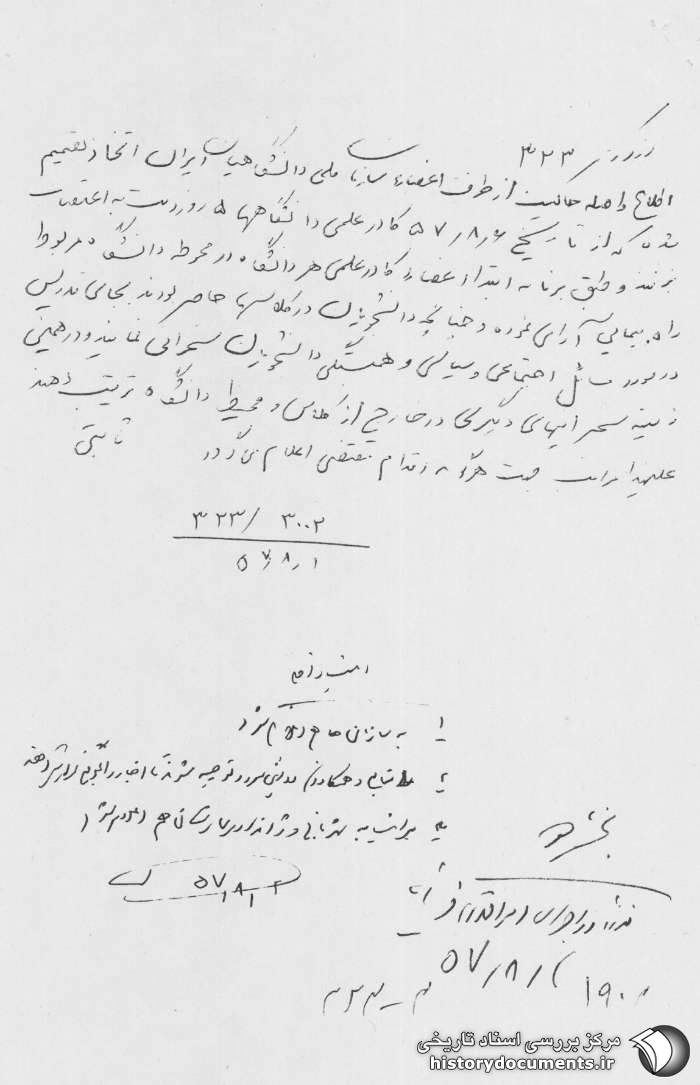 از مرکز ۳۲۳
اطلاع واصله حاکیست از طرف اعضاء سازمان ملی دانشگاهیان ایران اتخاذ تصمیم
شده که از تاریخ ۵۷/۸/۶ کادر علمی دانشگاهها ۵ روز دست به اعتصاب
بزنند و طبق برنامه ابتدا اعضاء کادر علمی هر دانشگاه در محوطه دانشگاه مربوط
راه پیمایی آرامی نموده و چنانچه دانشجویان در کلاسها حاضر بودند بجای تدریس
در مورد مسائل اجتماعی و سیاسی و همبستگی دانشجویان سخنرانی نمایند و در همین
زمینه سخنرانیهای دیگری در خارج از کلاس و محیط دانشگاه ترتیب دهند
علیهذا مراتب جهت هرگونه اقدام مقتضی اعلام می گردد ثابتی
۳۰۰۲/ ۳۲۳
۵۷/۸/۱
امنیت داخلی
۱ به سازمان اعلام شود
۲ منابع و همکاران توجیه شوند تا اخبار را
۳ مراتب به شهربانی و ژاندارمری هم اعلام شود
۵۷/۸/۲
بخش
در اجرای اوامر
۵۷/۸/
۱۹۰۸
مرکز بررسی اسناد تاریخی
historydocuments.ir